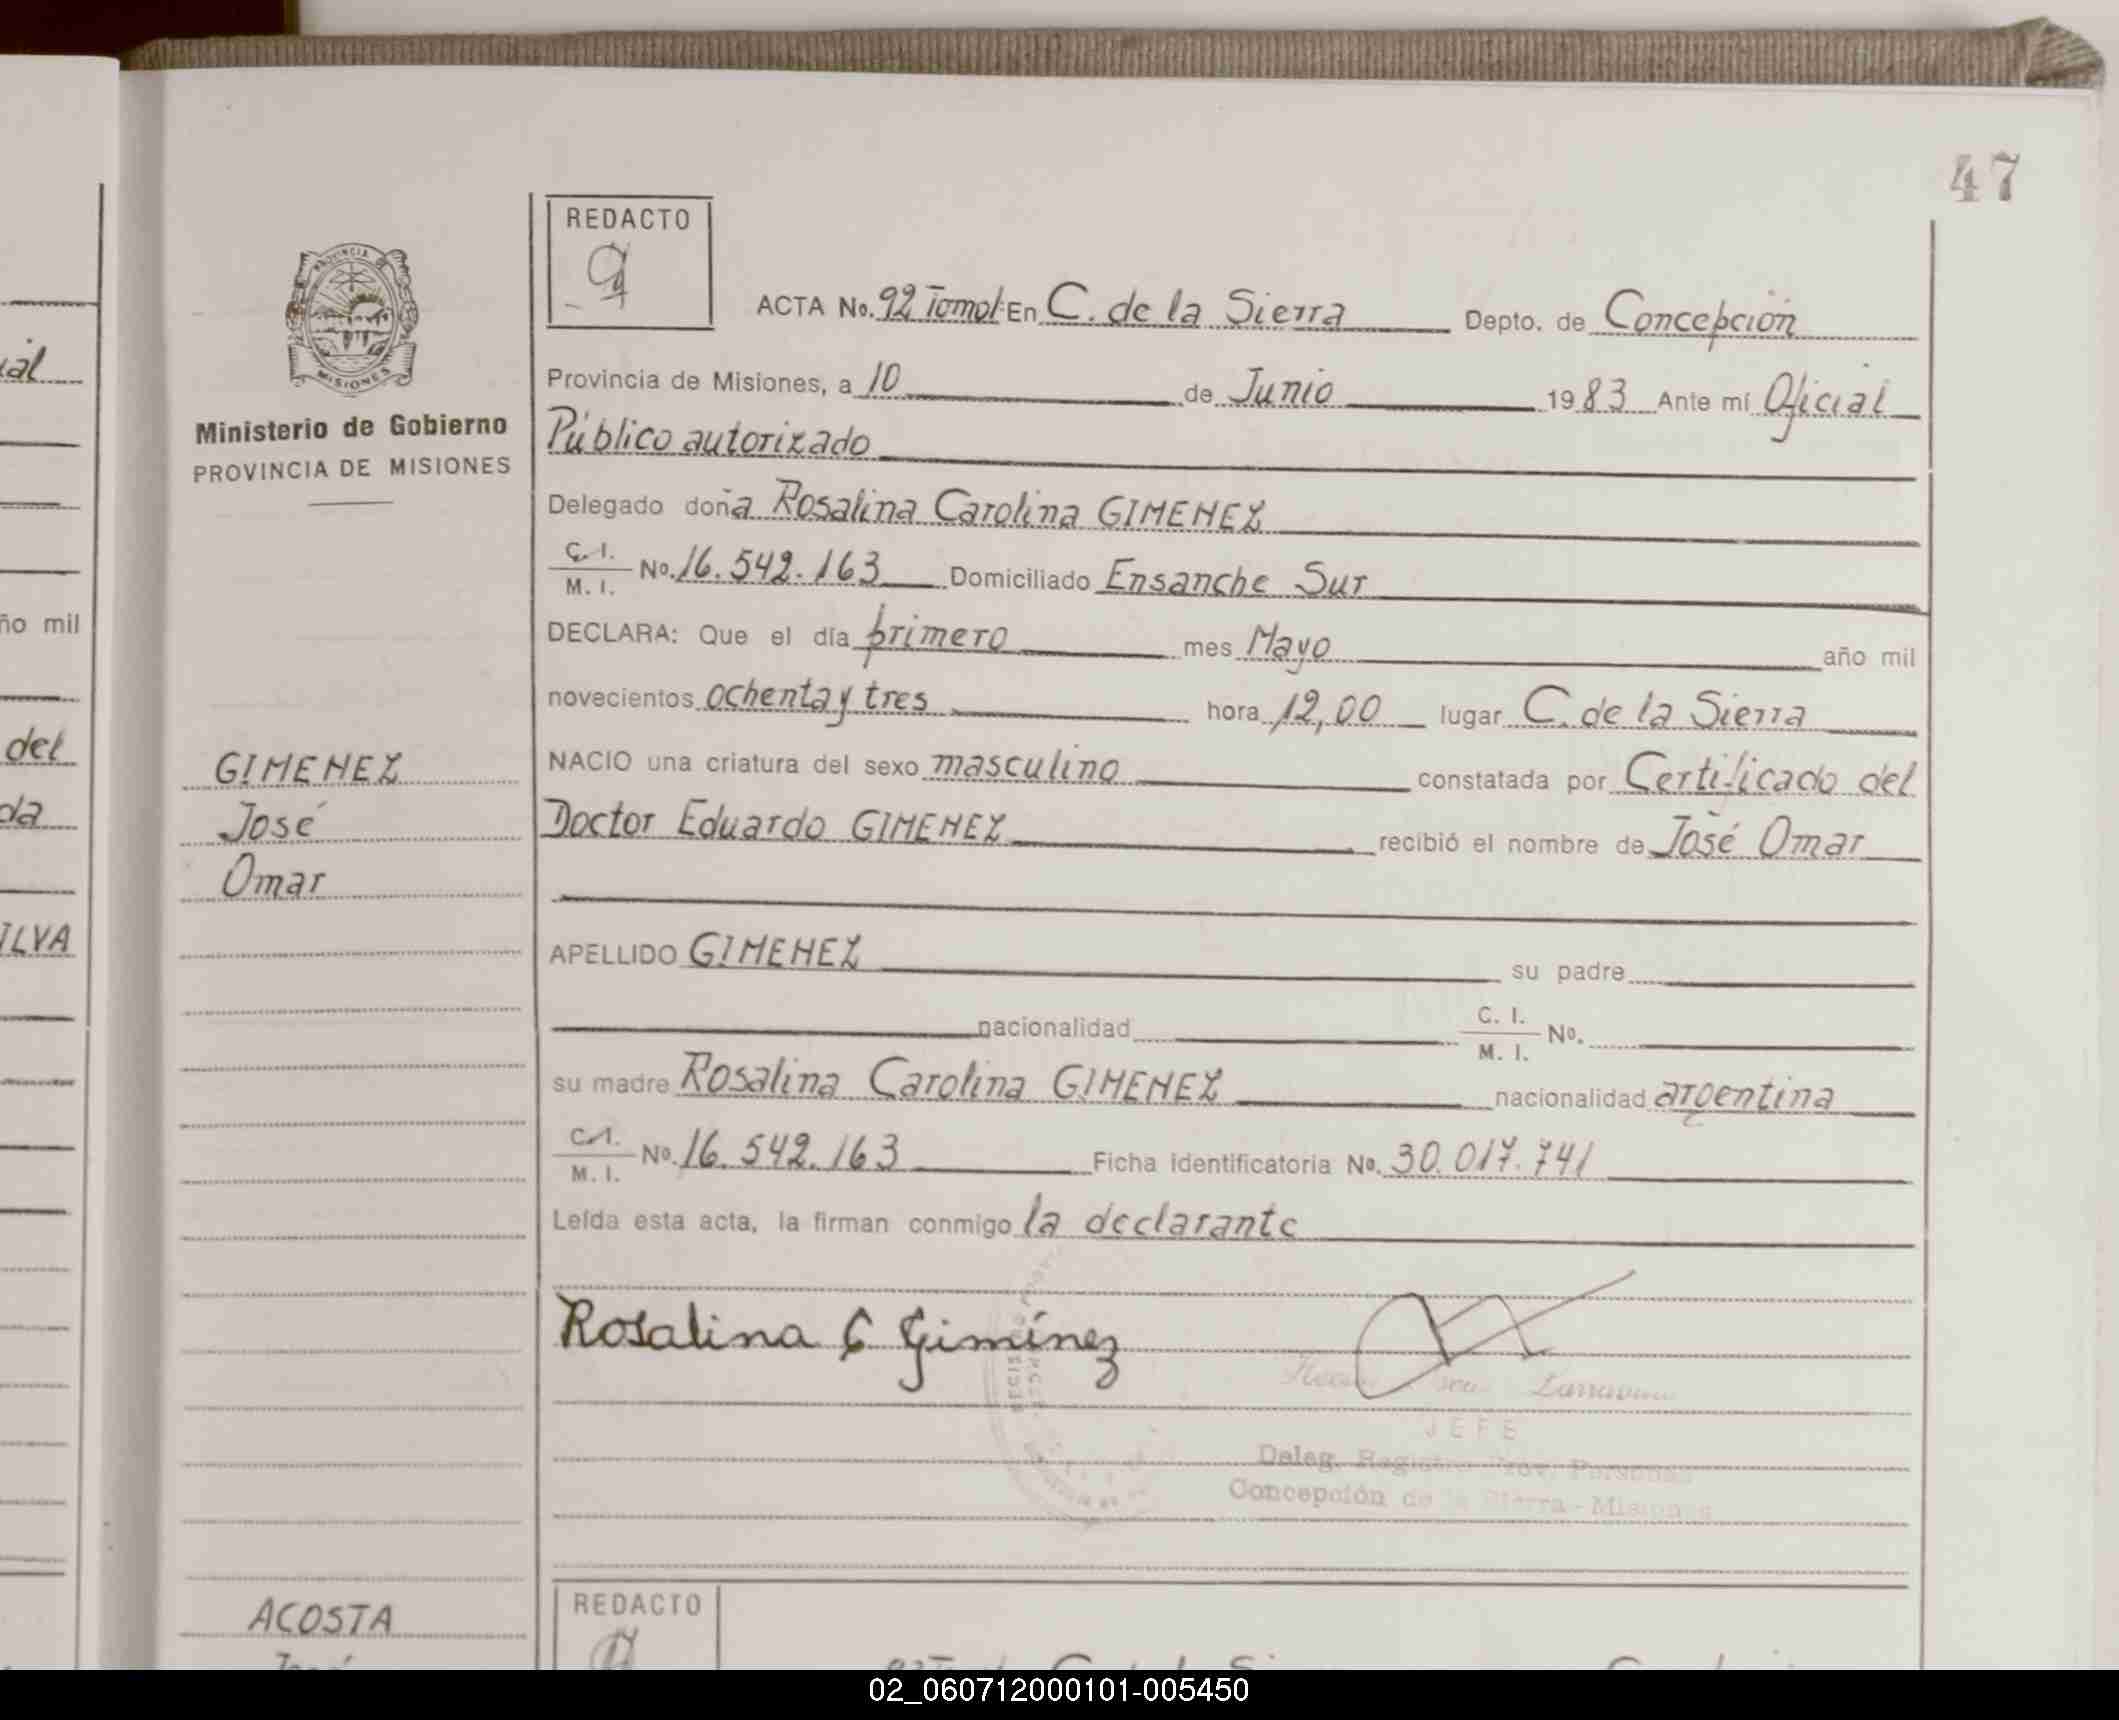 47
REDACTO
PROVINCIA
MISIONES
Ministerio de Gobierno
PROVINCIA DE MISIONES
ACTA No. 92 Tomo I En C. de la Sierra Depto. de Concepción
Provincia de Misiones, a 10 de Junio 1983 Ante mí Oficial
Público autorizado
Delegado doña Rosalina Carolina GIMENEZ
C. I. M. I. No. 16.542.163 Domiciliado Ensanche Sur
DECLARA: Que el día primero mes Mayo año mil
novecientos ochenta y tres hora 12,00 lugar C. de la Sierra
NACIO una criatura del sexo masculino constatada por Certificado del
Doctor Eduardo GIMENEZ recibió el nombre de José Omar
GIMENEZ
José
Omar
APELLIDO GIMENEZ su padre
nacionalidad C. I. M. I. No.
su madre Rosalina Carolina GIMENEZ nacionalidad argentina
C. I. M. I. No. 16.542.163 Ficha identificatoria No. 30.017.741
Leída esta acta, la firman conmigo la declarante
Rosalina C Gimínez
JEFE
Deleg. Registro Prov. Personas
Concepción de la Sierra - Misiones
REDACTO
ACOSTA
José
ial
ño mil
del
da
ILVA
02_060712000101-005450